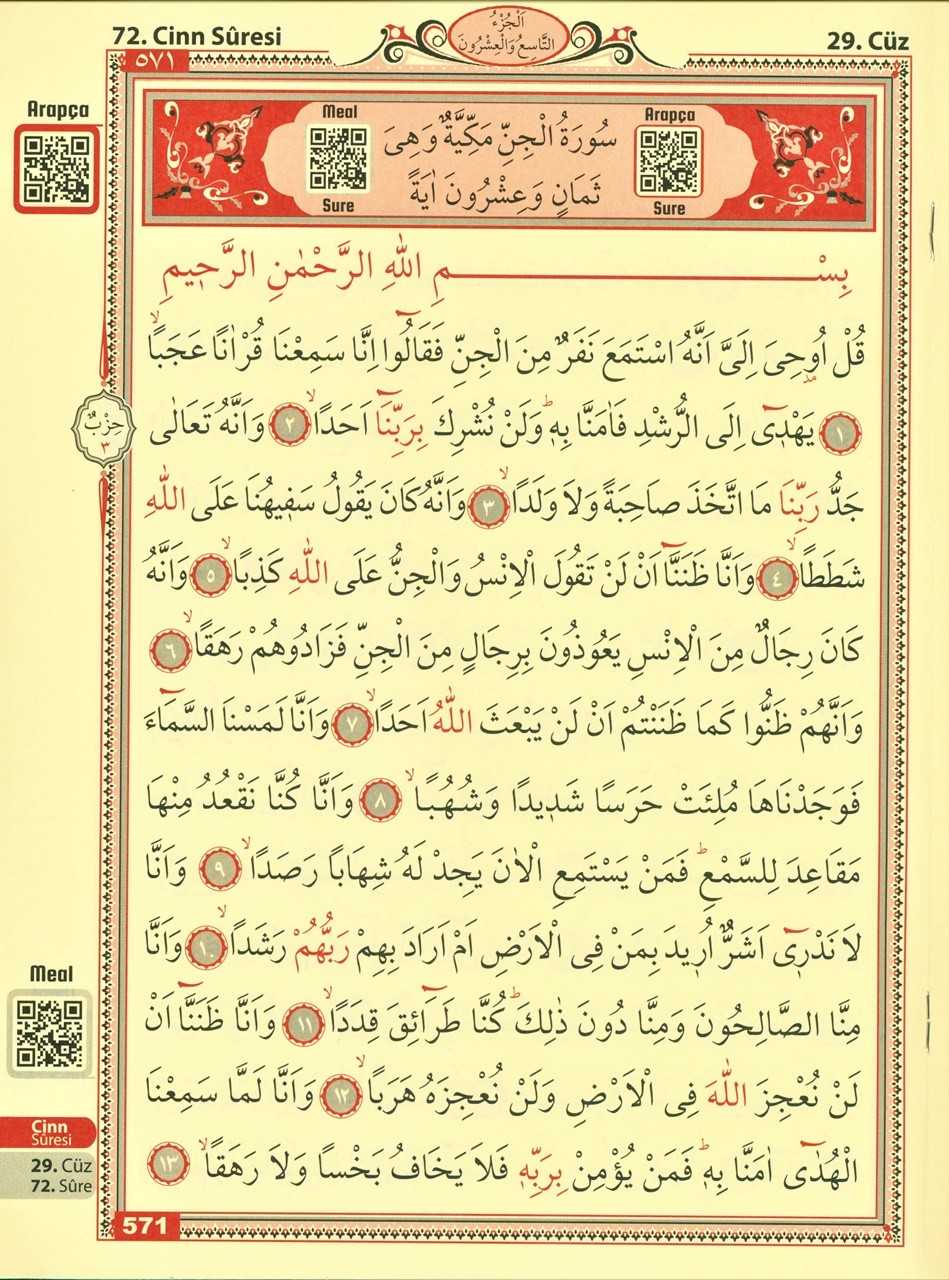 72. Cinn Sûresi
اَلْجُزْءُ
التَّاسِعُ وَالْعِشْرُونَ
29. Cüz
٥٧١
Arapça
Meal
Sure
Arapça
Sure
سُورَةُ الْجِنِّ مَكِّيَّةٌ وَهِىَ
ثَمَانٍ وَعِشْرُونَ اٰيَةً
بِسْمِ اللّٰهِ الرَّحْمٰنِ الرَّحٖيمِ
قُلْ اُوحِىَ اِلَىَّ اَنَّهُ اسْتَمَعَ نَفَرٌ مِنَ الْجِنِّ فَقَالُٓوا اِنَّا سَمِعْنَا قُرْاٰنًا عَجَبًاۙ
﴿١﴾ يَهْدٖٓى اِلَى الرُّشْدِ فَاٰمَنَّا بِهٖؕ وَلَنْ نُشْرِكَ بِرَبِّنَٓا اَحَدًاۙ ﴿٢﴾ وَاَنَّهُ تَعَالٰى
حِزْبٌ
٣
جَدُّ رَبِّنَا مَا اتَّخَذَ صَاحِبَةً وَلَا وَلَدًاۙ ﴿٣﴾ وَاَنَّهُ كَانَ يَقُولُ سَفٖيهُنَا عَلَى اللّٰهِ
شَطَطًاۙ ﴿٤﴾ وَاَنَّا ظَنَنَّٓا اَنْ لَنْ تَقُولَ الْاِنْسُ وَالْجِنُّ عَلَى اللّٰهِ كَذِبًاۙ ﴿٥﴾ وَاَنَّهُ
كَانَ رِجَالٌ مِنَ الْاِنْسِ يَعُوذُونَ بِرِجَالٍ مِنَ الْجِنِّ فَزَادُوهُمْ رَهَقًاۙ ﴿٦﴾
وَاَنَّهُمْ ظَنُّوا كَمَا ظَنَنْتُمْ اَنْ لَنْ يَبْعَثَ اللّٰهُ اَحَدًاۙ ﴿٧﴾ وَاَنَّا لَمَسْنَا السَّمَٓاءَ
فَوَجَدْنَاهَا مُلِئَتْ حَرَسًا شَدٖيدًا وَشُهُبًاۙ ﴿٨﴾ وَاَنَّا كُنَّا نَقْعُدُ مِنْهَا
مَقَاعِدَ لِلسَّمْعِؕ فَمَنْ يَسْتَمِعِ الْاٰنَ يَجِدْ لَهُ شِهَابًا رَصَدًاۙ ﴿٩﴾ وَاَنَّا
لَا نَدْرٖٓى اَشَرٌّ اُرٖيدَ بِمَنْ فِى الْاَرْضِ اَمْ اَرَادَ بِهِمْ رَبُّهُمْ رَشَدًاۙ ﴿١٠﴾ وَاَنَّا
مِنَّا الصَّالِحُونَ وَمِنَّا دُونَ ذٰلِكَؕ كُنَّا طَرَٓائِقَ قِدَدًاۙ ﴿١١﴾ وَاَنَّا ظَنَنَّٓا اَنْ
لَنْ نُعْجِزَ اللّٰهَ فِى الْاَرْضِ وَلَنْ نُعْجِزَهُ هَرَبًاۙ ﴿١٢﴾ وَاَنَّا لَمَّا سَمِعْنَا
الْهُدٰٓى اٰمَنَّا بِهٖؕ فَمَنْ يُؤْمِنْ بِرَبِّهٖ فَلَا يَخَافُ بَخْسًا وَلَا رَهَقًاۙ ﴿١٣﴾
Meal
Cinn
Sûresi
29. Cüz
72. Sûre
571